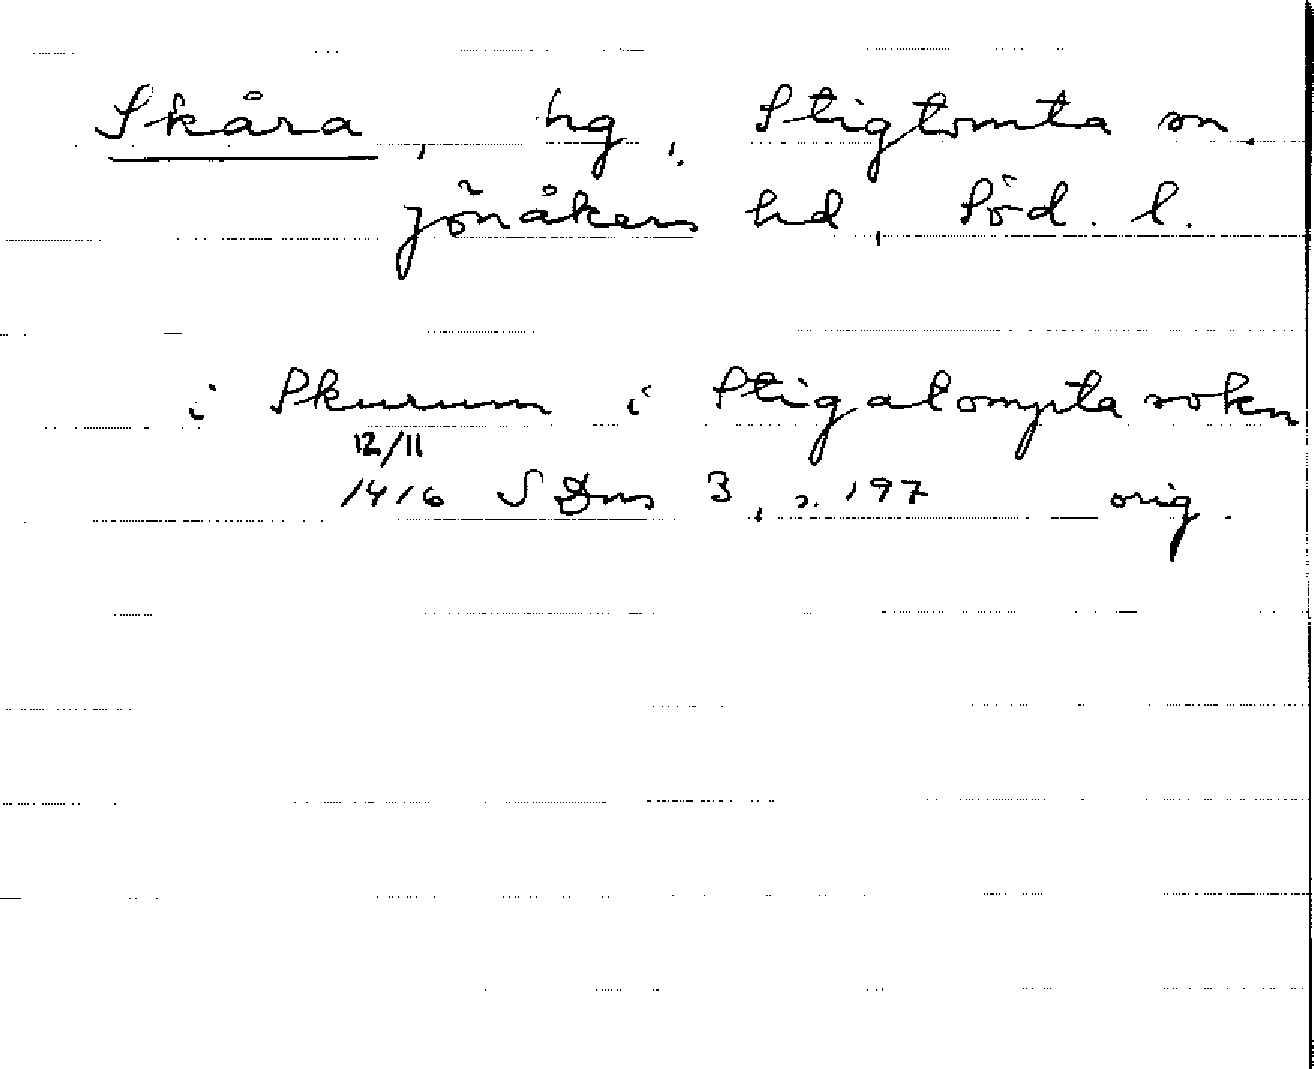 Skåra, hg, Stigtomta sn.
Jönåkers hd, Söd. l.
i Skurum i Stigatompta sokn
12/11
1416 SDns 3, s. 197 orig.